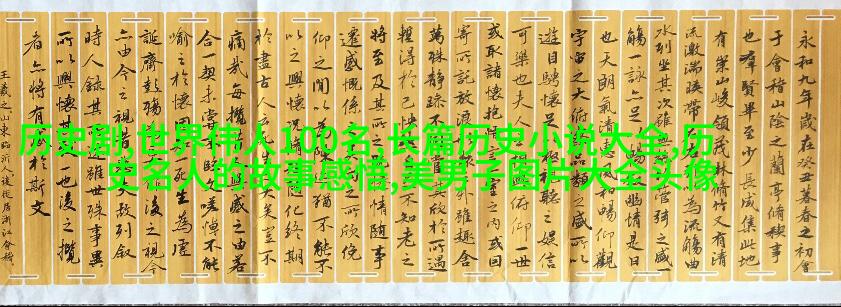 历史剧,世界伟人100名,长篇历史小说大全,历
史名人的故事感悟,美男子图片大全头像
永和九年歲在癸丑暮春之初會
于會稽山陰之蘭亭脩稧事
也群賢畢至少長咸集此地
有崇山峻領茂林脩竹又有清
流激湍暎帶左右為流觴曲
水列坐其次雖無管弦之盛一
觴一詠亦足以幽情是日
也天朗氣清惠風和暢仰觀
宇宙之大俯察品之盛所以
遊目騁懷足以極視聽之娛信
可樂也夫人之俯仰一世
或取諸懷抱悟言一室之內或因
寄所託放浪之外雖趣舍
萬殊靜躁不同欣於所遇
暫得於己快然不知老之
將至及其所之情隨事
遷感慨係之所欣俛
仰之間以為猶不能不
以之興懷況化終期
於盡古人云死大矣豈不
痛哉每攬昔感之由若
合一契未嘗不嗟悼不能
喻之於懷固一死生為虛
誕齊彭殤後之視今
亦由今之視昔故列敘
時人錄其雖世殊事異
所以興懷其一也後之攬
者亦將有於斯文
王羲之山東臨沂人後徙居浙江會稽